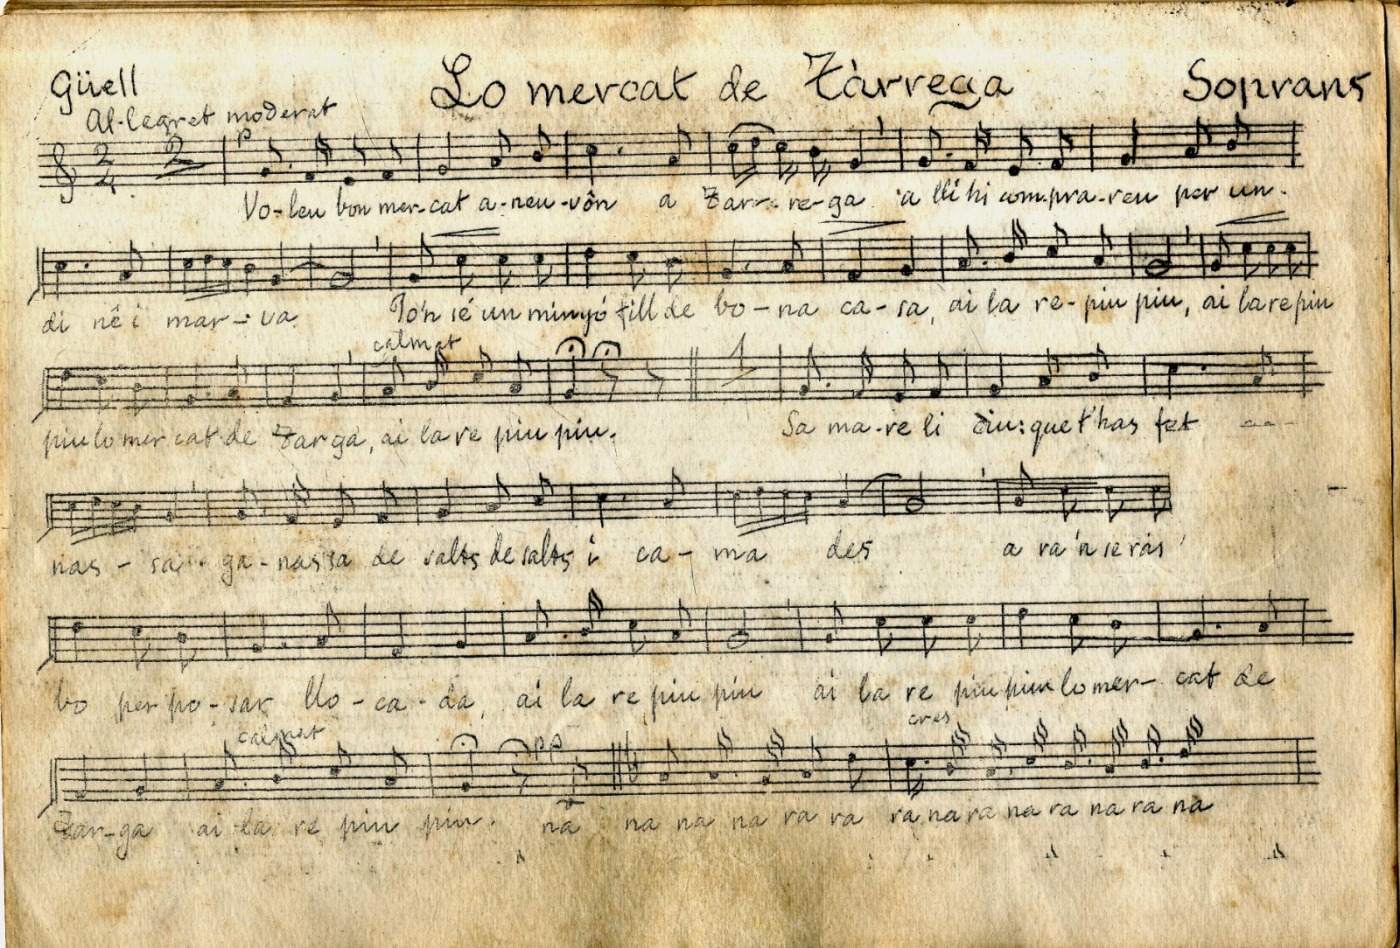 Güell Lo mercat de Tàrrega Soprans
Al·legret moderat
p
2 4 2
Vo-leu bon mer-cat a-neu-vôn a Tar-re-ga a llí hi com-pra-reu per un-
di nê i mar-va Jo'n sé un minyó fill de bo-na ca-sa, ai la re-piu piu, ai la re piu
calmat
1
piu lo mer cat de Tar ga, ai la re piu piu. Sa ma-re li diu: que t'has fet
nas-sa-ga-nassa de salts de salts i ca-ma des a ra'n seràs
bo per po-sar llo-ca-da, ai la re piu piu ai la re piu piu lo mer-cat de
calmat pp cres
Tar-ga ai la re piu piu. na na na na ra ra ra na ra na ra na ra na